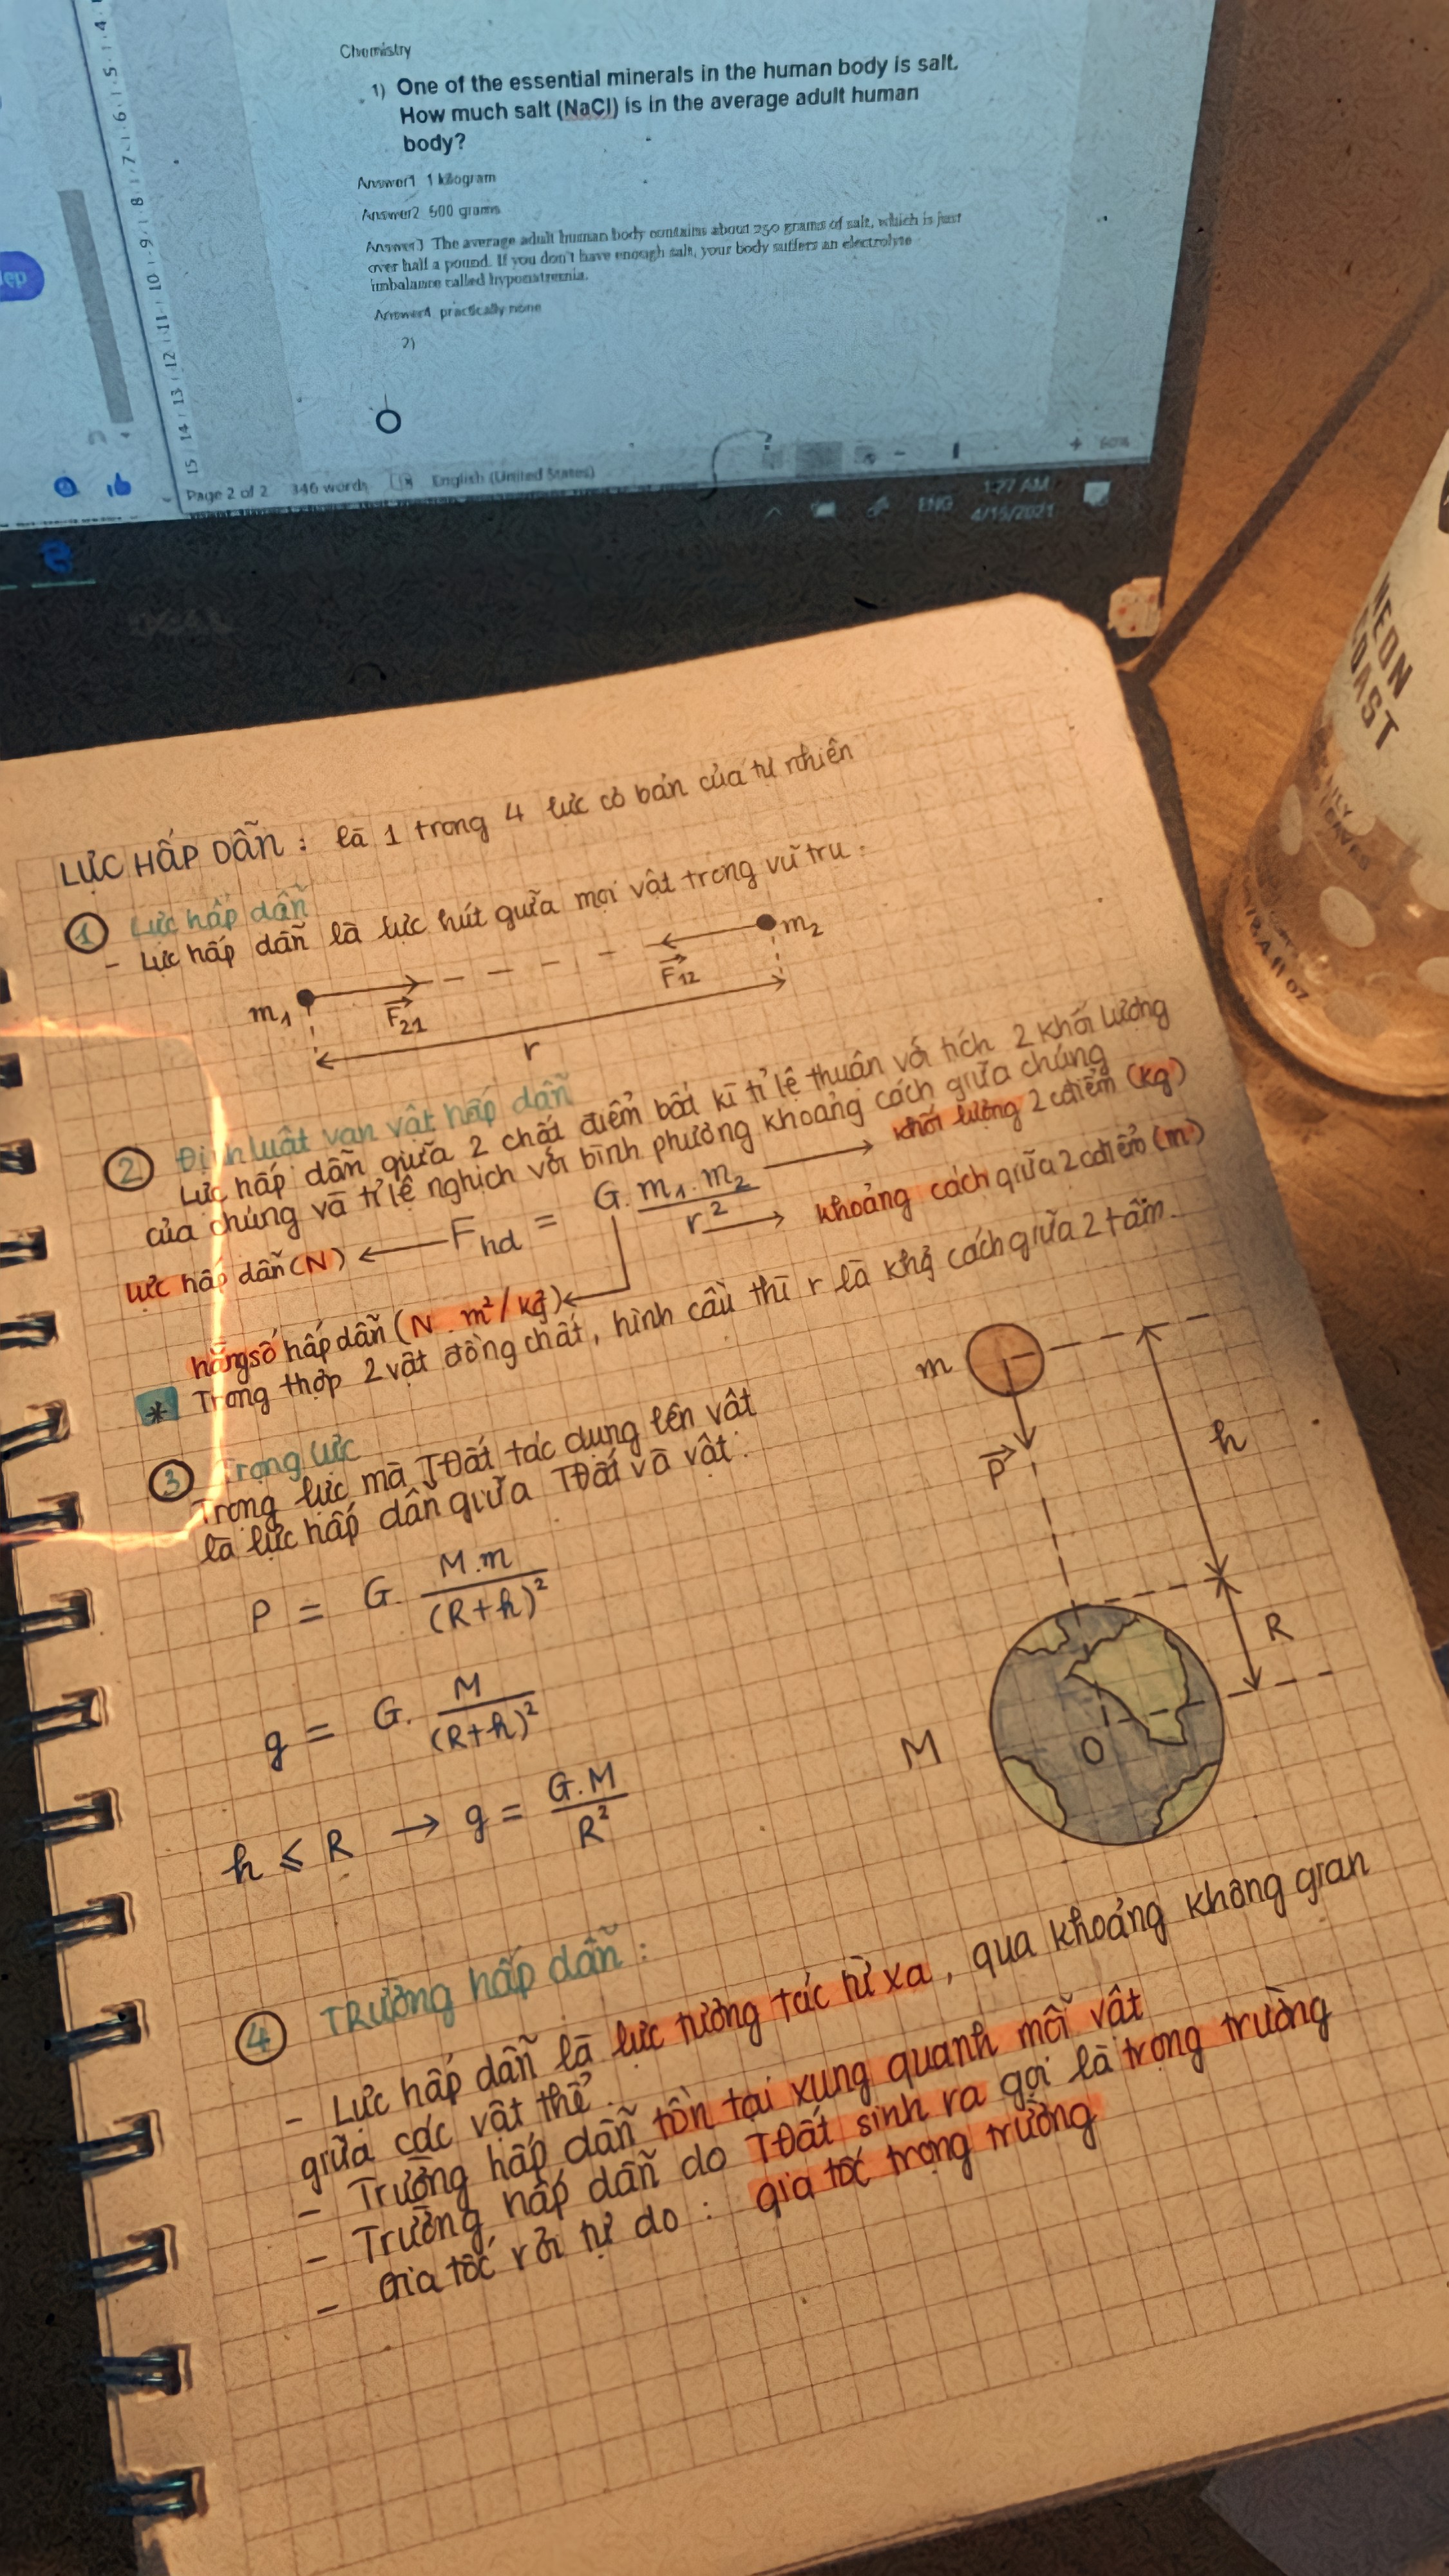 Chemistry
1) One of the essential minerals in the human body is salt.
How much salt (NaCl) is in the average adult human
body?
Answer1 1 kilogram
Answer2 500 grams
Answer3 The average adult human body contains about 250 grams of salt, which is just
over half a pound. If you don't have enough salt, your body suffers an electrolyte
imbalance called hyponatremia.
Answer4 practically none
2)
15 14 13 12 11 10 9 8 7 6 5 4
Page 2 of 2 346 words English (United States) 60%
ENG 1:27 AM
4/15/2021
NEON
COAST
LỰC HẤP DẪN: là 1 trong 4 lực cơ bản của tự nhiên
① Lực hấp dẫn
- Lực hấp dẫn là lực hút giữa mọi vật trong vũ trụ.
m1 F21 F12 m2
r
② Định luật vạn vật hấp dẫn
Lực hấp dẫn giữa 2 chất điểm bất kì tỉ lệ thuận với tích 2 khối lượng
của chúng và tỉ lệ nghịch với bình phương khoảng cách giữa chúng
Lực hấp dẫn (N) ← Fhd = G. m1.m2 / r² → khối lượng 2 cđiểm (kg)
→ khoảng cách giữa 2 cđiểm (m)
hằng số hấp dẫn (N.m²/kg²) ←
* Trong thợp 2 vật đồng chất, hình cầu thì r là khg cách giữa 2 tâm.
③ Trọng lực
Trọng lực mà TĐất tác dụng lên vật
là lực hấp dẫn giữa TĐất và vật.
P = G. M.m / (R+h)²
g = G. M / (R+h)²
h ⩽ R → g = G.M / R²
m
P
h
R
M
O
④ TRường hấp dẫn:
- Lực hấp dẫn là lực tương tác từ xa, qua khoảng không gian
giữa các vật thể.
- Trường hấp dẫn tồn tại xung quanh mỗi vật
- Trường hấp dẫn do TĐất sinh ra gọi là trọng trường
- Gia tốc rơi tự do: gia tốc trọng trường